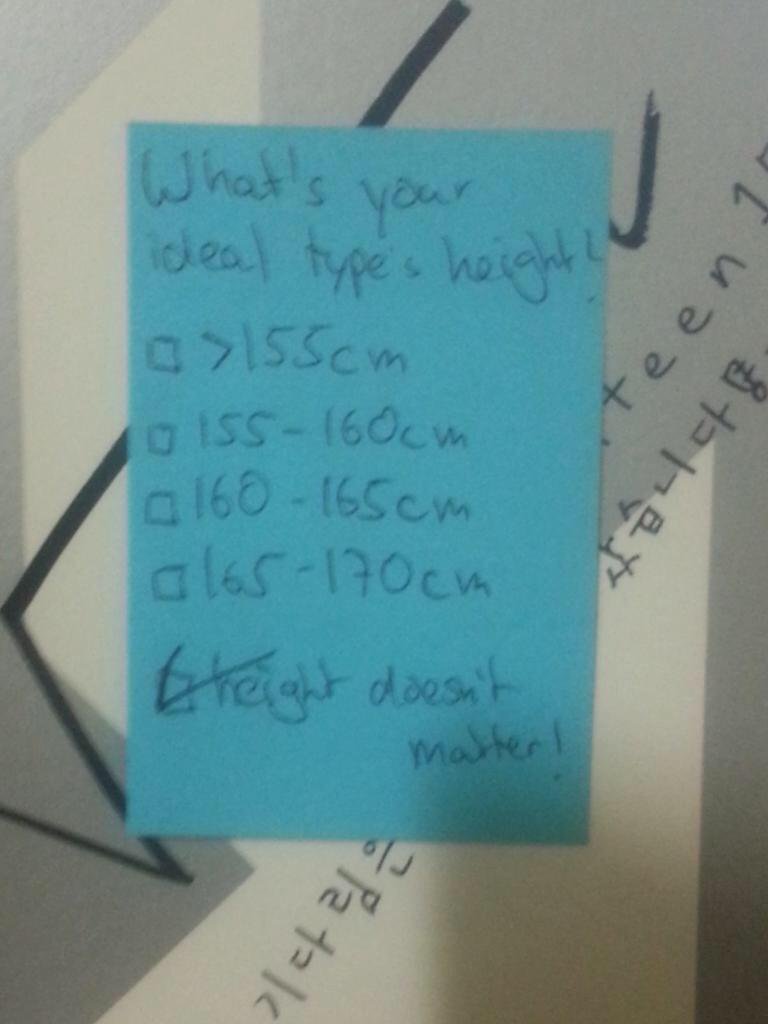 What's your
ideal type's height?
□ >155cm
□ 155-160cm
□ 160-165cm
□ 165-170cm
☑ height doesn't
matter!
teen 17
습니다
기다림은